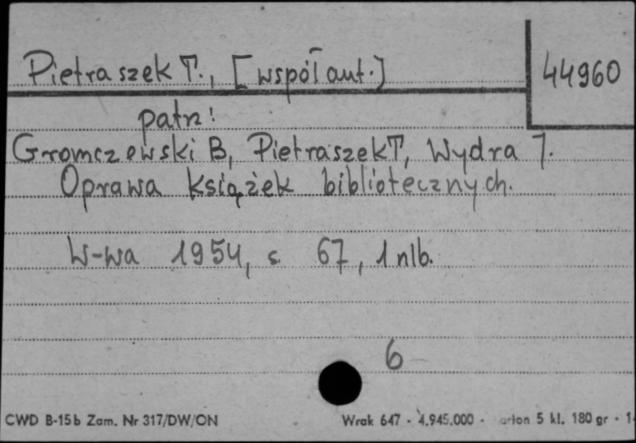 Pietraszek T., [współaut.]
44960
patrz:
Gromczewski B, Pietraszek T, Wydra J.
Oprawa książek bibliotecznych.
W-wa 1954, s. 67, 1 nlb.
6
CWD B-15b Zam. Nr 317/DW/ON
Wrak 647 - 4.945.000 - arton 5 kl. 180 gr - 1